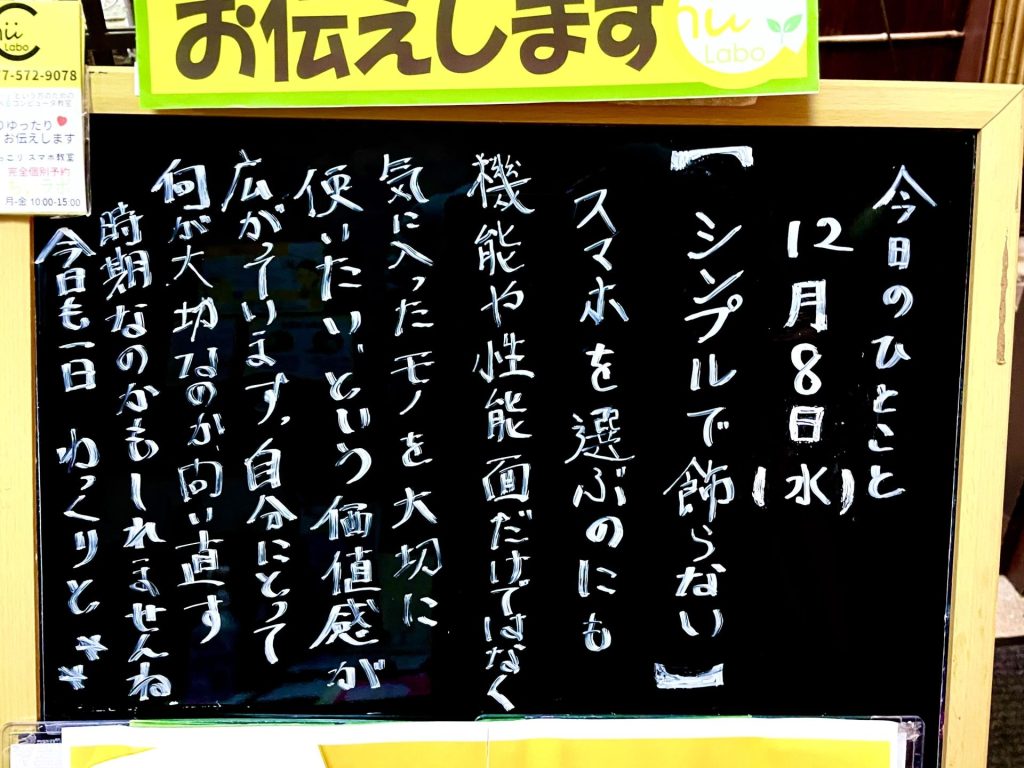 お伝えします
Labo
Labo
77-572-9078
ゆったり
お伝えします
スマホ教室
完全個別予約
月-金 10:00-15:00
今日のひとこと
12月8日(水)
「シンプルで飾らない」
スマホを選ぶのにも
機能や性能面だけではなく
気に入ったモノを大切に
使いたいという価値感が
広がっています。自分にとって
何が大切なのか、向い直す
時期なのかもしれませんね
今日も一日 わっくりと**